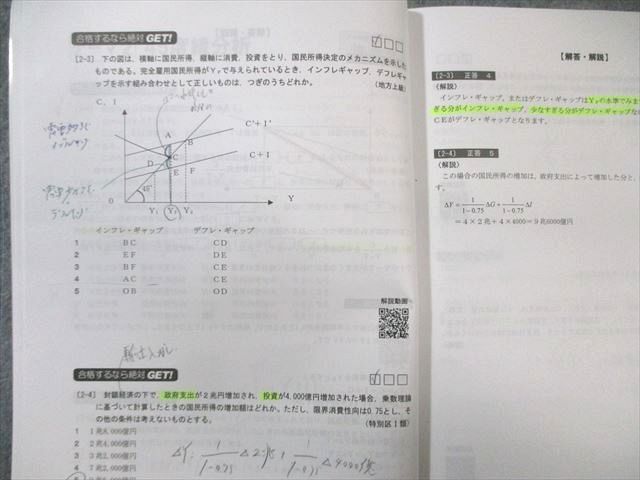 合格するなら絶対GET!
[2-3] 下の図は，横軸に国民所得，縦軸に消費，投資をとり，国民所得決定のメカニズムを示した
ものである。完全雇用国民所得がYFで与えられているとき，インフレギャップ，デフレギャ
ップを示す組み合わせとして正しいものは，つぎのうちどれか。
(地方上級)
C, I
A
B
C'+I'
C
D
C+I
E
F
45°
0
Y₁
Y₂
Y
インフレ・ギャップ デフレ・ギャップ
1 BC CD
2 EF DE
3 BF CE
4 AC CE
5 OB OD
解説動画
合格するなら絶対GET!
[2-4] 封鎖経済の下で，政府支出が2兆円増加され，投資が4,000億円増加された場合，乗数理論
に基づいて計算したときの国民所得の増加額はどれか。ただし，限界消費性向は0.75とし，そ
の他の条件は考えないものとする。
(特別区Ⅰ類)
1 1兆8,000億円
2 2兆4,000億円
4 7兆2,000億円
【解答・解説】
[2-3] 正答 4
〈解説〉
インフレ・ギャップ，またはデフレ・ギャップはYFの水準でみ
ぎる分がインフレ・ギャップ，少なすぎる分がデフレ・ギャップな
CEがデフレ・ギャップとなります。
[2-4] 正答 5
〈解説〉
この場合の国民所得の増加は，政府支出によって増加した分と，
す。
ΔY = 1/(1-0.75) ΔG + 1/(1-0.75) ΔI
= 4×2兆+4×4000=9兆6000億円